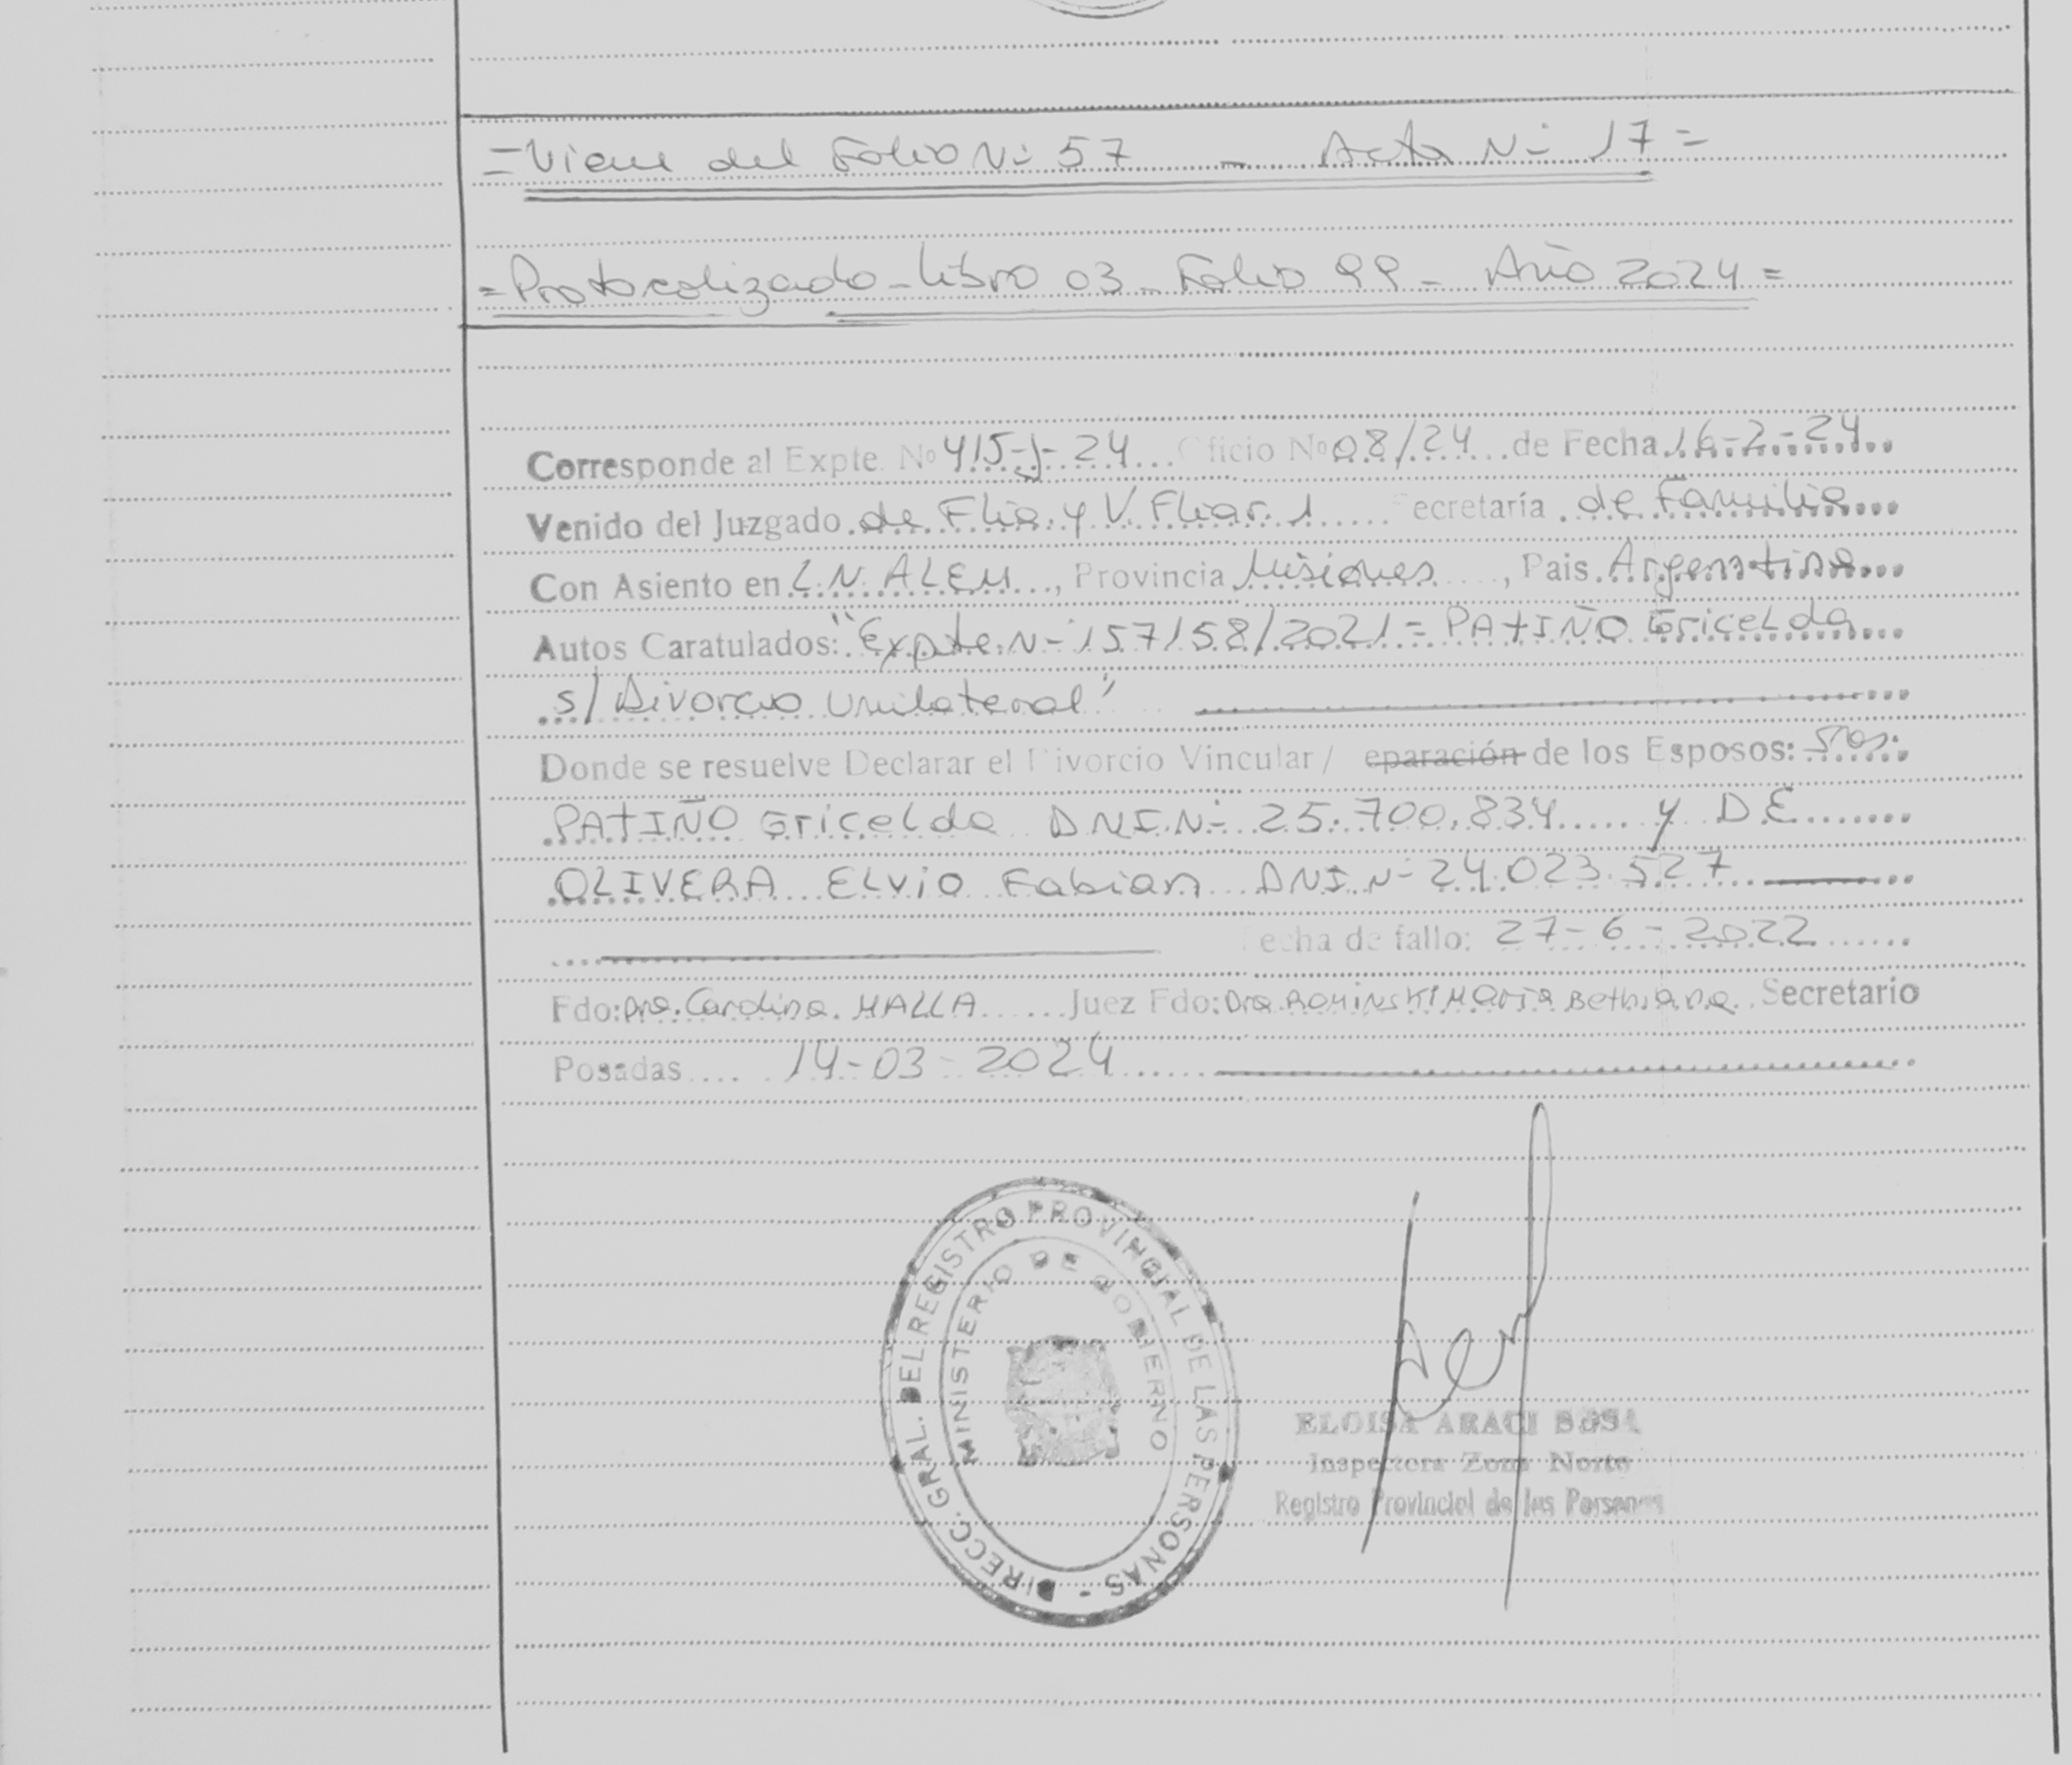 =Viene del Folio Nº 57 - Acta Nº 17=
=Protocolizado - Libro 03 - Folio 99 - Año 2024=
Corresponde al Expte. Nº 415-J-24 Oficio Nº 08/24 de Fecha 16-2-24
Venido del Juzgado de Flia. y V. Fliar. 1 Secretaría de Familia
Con Asiento en L.N. ALEM, Provincia Misiones, Pais Argentina
Autos Caratulados: "Expte. Nº 157158/2021= PATIÑO Gricelda
s/ Divorcio Unilateral"
Donde se resuelve Declarar el Divorcio Vincular / eparación de los Esposos: Sres.
PATIÑO Gricelda DNI.Nº 25.700.834 y DE
OLIVERA ELvio Fabian DNI.Nº 24.023.527
Fecha de fallo: 27-6-2022
Fdo: Dra. Carolina MALLA Juez Fdo: Dra. ROMINSKI Maria Bethiana Secretario
Posadas 14-03-2024
DIRECC. GRAL. DEL REGISTRO PROVINCIAL DE LAS PERSONAS -
MINISTERIO DE GOBIERNO
ELOISA ARACI SOSA
Inspectora Zona Norte
Registro Provincial de las Personas